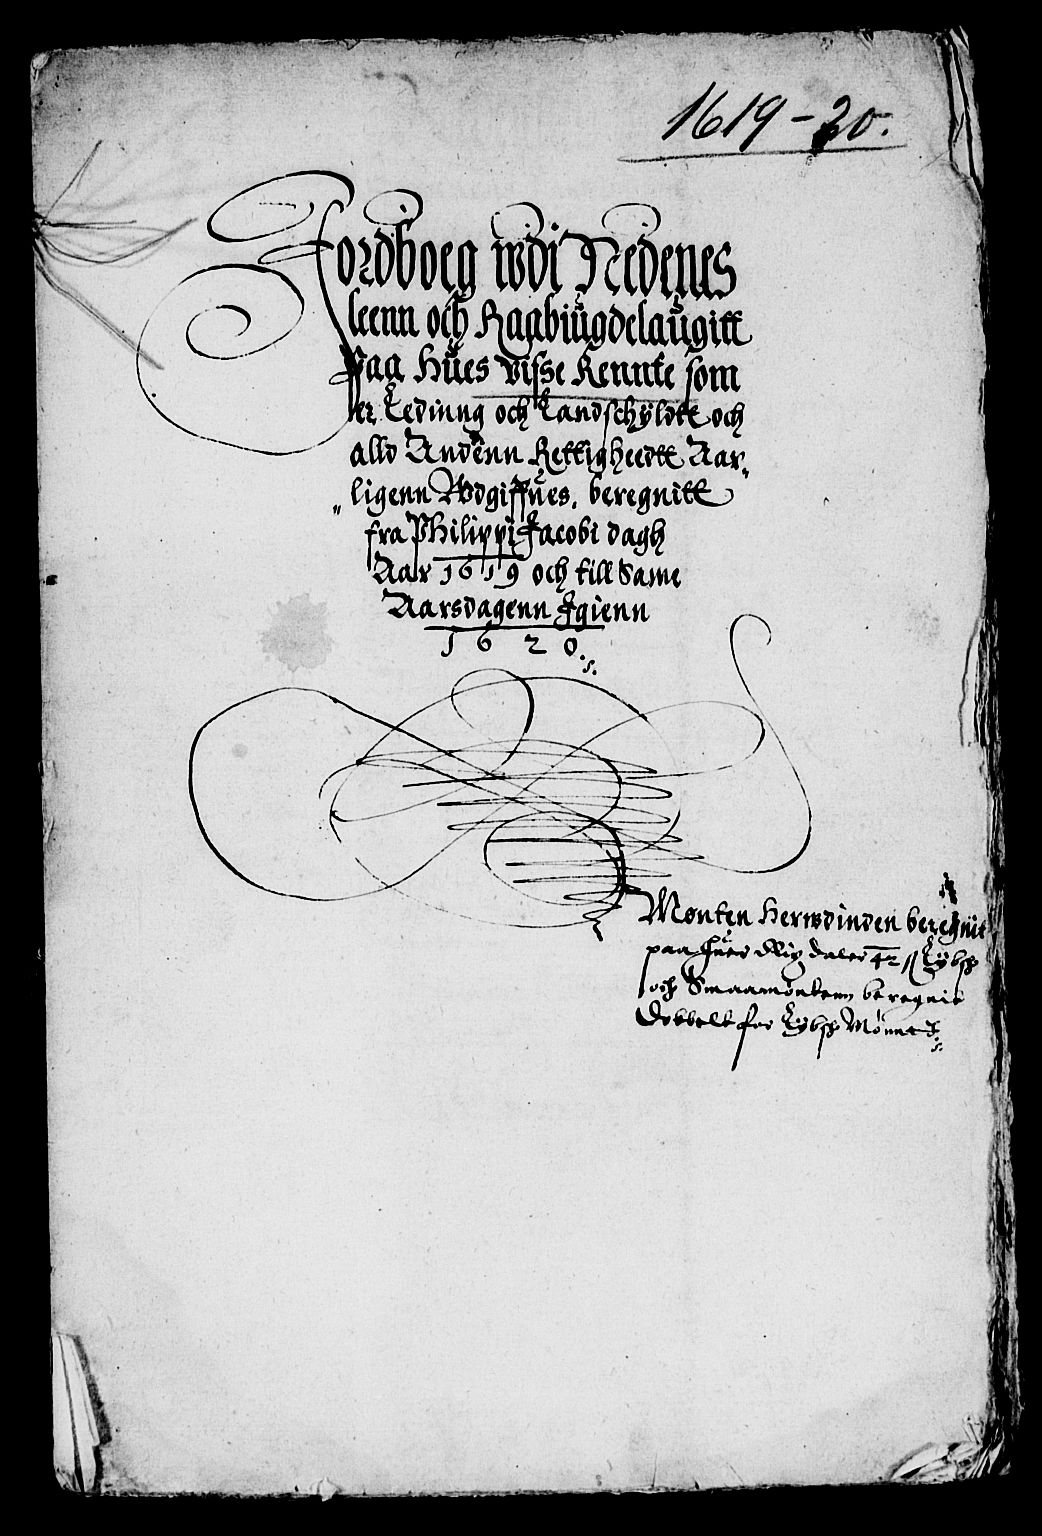 1619-20.
Jordboeg wdi Nedenes
leenn och Raabiugdelaugitt
Paa Hues Visse Rennte som
er Leding och Landschÿldtt och
alld Andenn Rettigheedtt Aar„
„ligenn Wdgiffues, beregnitt
fra Philippi Jacobi dagh
Aar 1619 och till Same
Aarsdagenn Igienn
1620.
Mønten herwdinden beregnit
paa huer daler 42 ß Lÿbsk
och Smaamøntenn beregnit
Dobbelt for Lÿbsk Mønnt